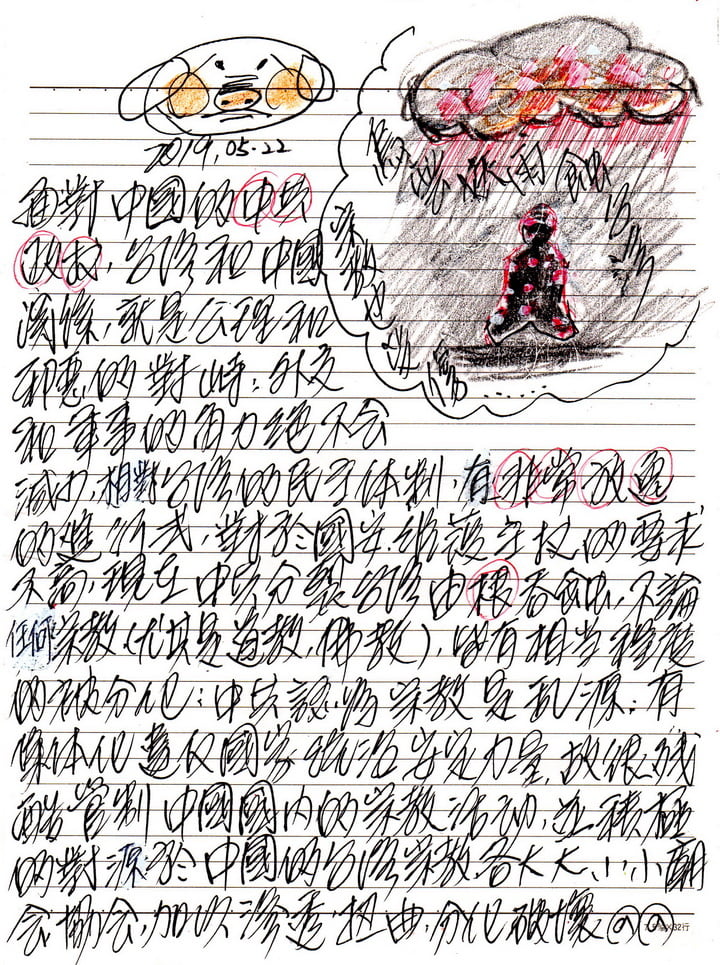 2019.05.22
酸雨蝕
台灣
宗教也
面對中國的中共
政權，台灣和中國
關係，就是公理和
邪惡的對峙；外交
和軍事的角力絕不会
減少，相對台灣的民主体制，有非常放過
的進行式，對於國家維護主权的要求
不高，現在中共分裂台灣由根吞蝕，不論
任何宗教（尤其是道教，佛教），皆有相当程度
的被分化；中共認為宗教是乱源；有
集体化違反國家統治安定力量，故很残
酷管制中國國內的宗教活动，並積極
的對源於中國的台灣宗教各大大小小廟
会協会，加以滲透，扭曲，分化破壞
X32行